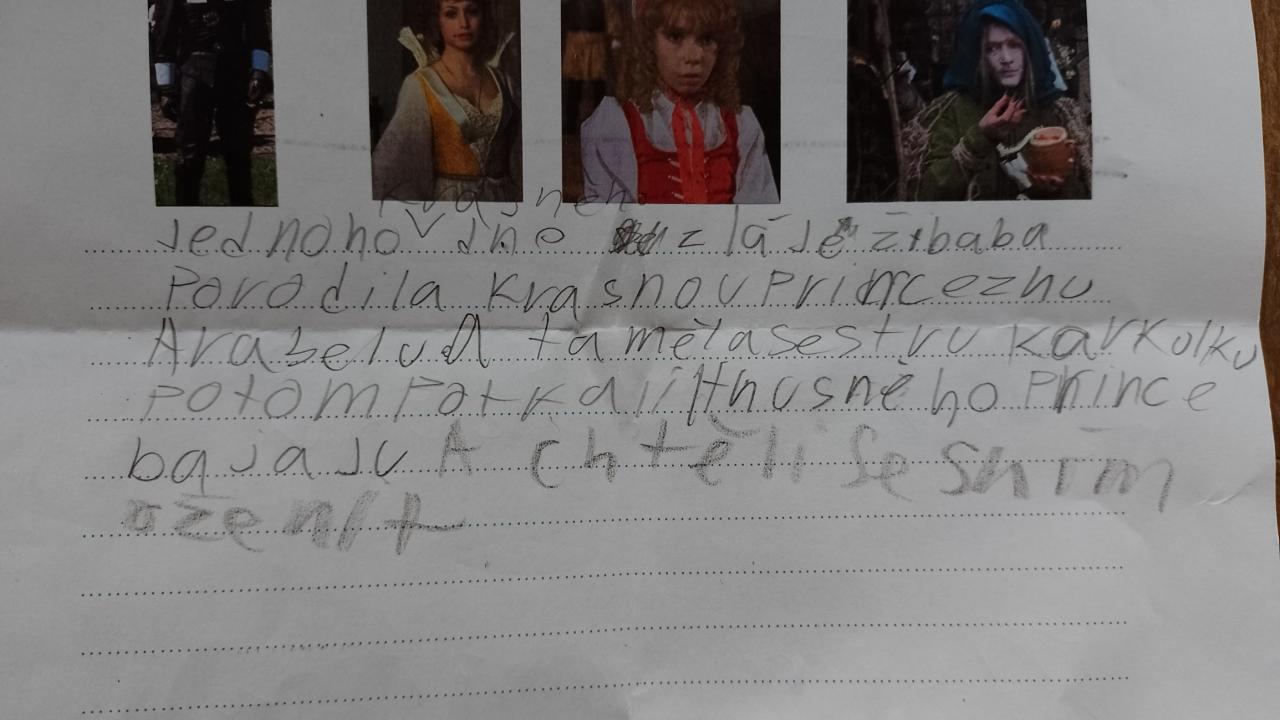 krásneh
Jednoho dne zlá Ježibaba
Porodila krasnou Princeznu
Arabelu A ta měla sestru karkolku
potom Potkali Hnusného Prince
bajaju A chtěli se sním
oženit